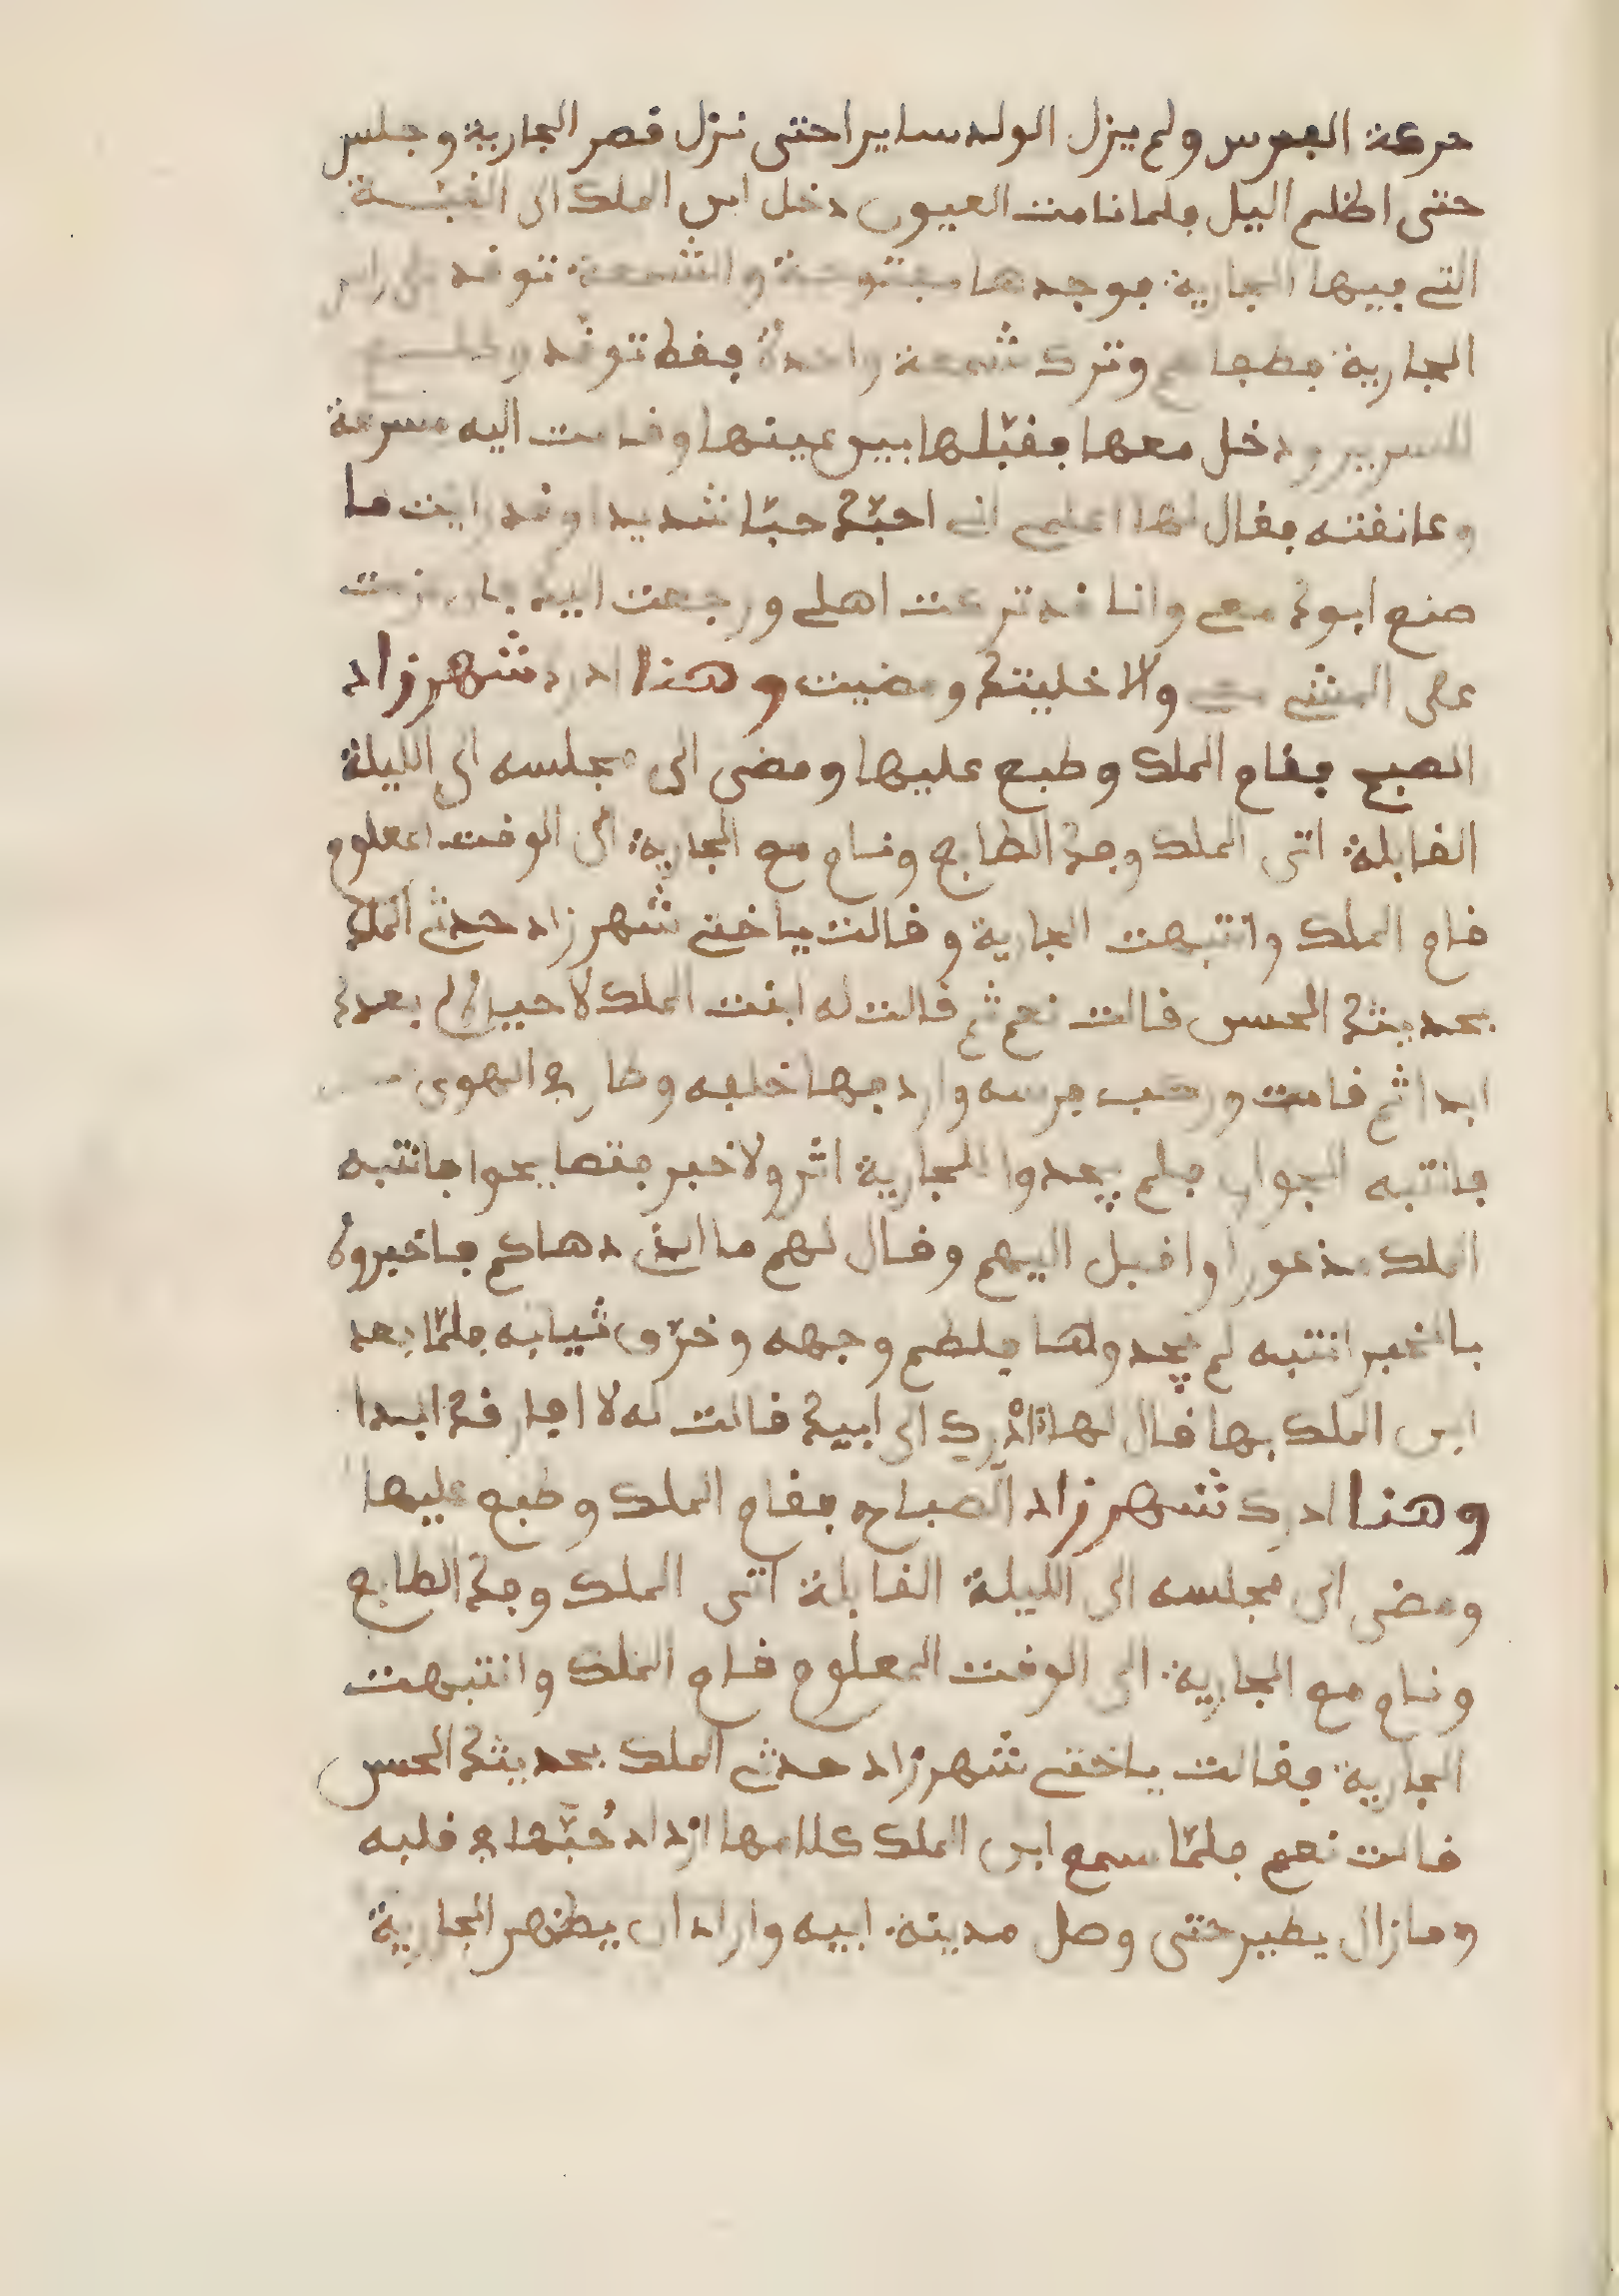 حركة الفرس ولم يزل الولد سايرا حتى نزل قصر الجارية وجلس
حتى اظلم اليل فلما نامت العيون دخل ابن الملك الى القبّة
التي فيها الجارية فوجدها مفتوحة والشمعة توقد على راس
الجارية فطفاهم وترك شمعة واحدة فقط توقد
للسرير ودخل معها فقبّلها بين عينها وقامت اليه مسرعة
وعانقته فقال لها اعلمي اني احبّك حبّا شديدا وقد رايت ما
صنع ابوك معي وانا قد تركت اهلي ورجعت اليك فان عزمت
على المشي والا خليتك ومضيت وهنا ادرك شهرزاد
الصبح فقام الملك وطبع عليها ومضى الى مجلسه الى الليلة
القابلة اتى الملك وفكّ الطابع ونام مع الجارية الى الوقت المعلوم
قام الملك وانتبهت الجارية وقالت يا ختي شهرزاد حدثي الملك
بحديثك الحسن قالت نعم ثم قالت له ابنت الملك لا حيلة لي بعدك
ابدا ثم قامت وركب فرسه واردفها خلفه وطار في الهوى
فانتبه الجوار فلم يجدوا للجارية اثر ولا خبر فتصايحوا فانتبه
الملك مذعورا واقبل اليهم وقال لهم ما الذي دهاكم فاخبروه
بالخبر انتبه لم يجدوها فلطم وجهه وخرّق ثيابه فلمّا بعد
ابن الملك بها قال لها اردك الى ابيك قالت له لا افارقك ابدا
وهنا ادرك شهرزاد الصباح فقام الملك وطبع عليها
ومضى الى مجلسه الى الليلة القابلة اتى الملك وفكّ الطابع
ونام مع الجارية الى الوقت المعلوم قام الملك وانتبهت
الجارية فقالت يا ختي شهرزاد حدثي الملك بحديثك الحسن
قالت نعم فلمّا سمع ابن الملك كلامها ازداد حُبّها في قلبه
وما زال يطير حتى وصل مدينة ابيه واراد ان يظهر الجارية